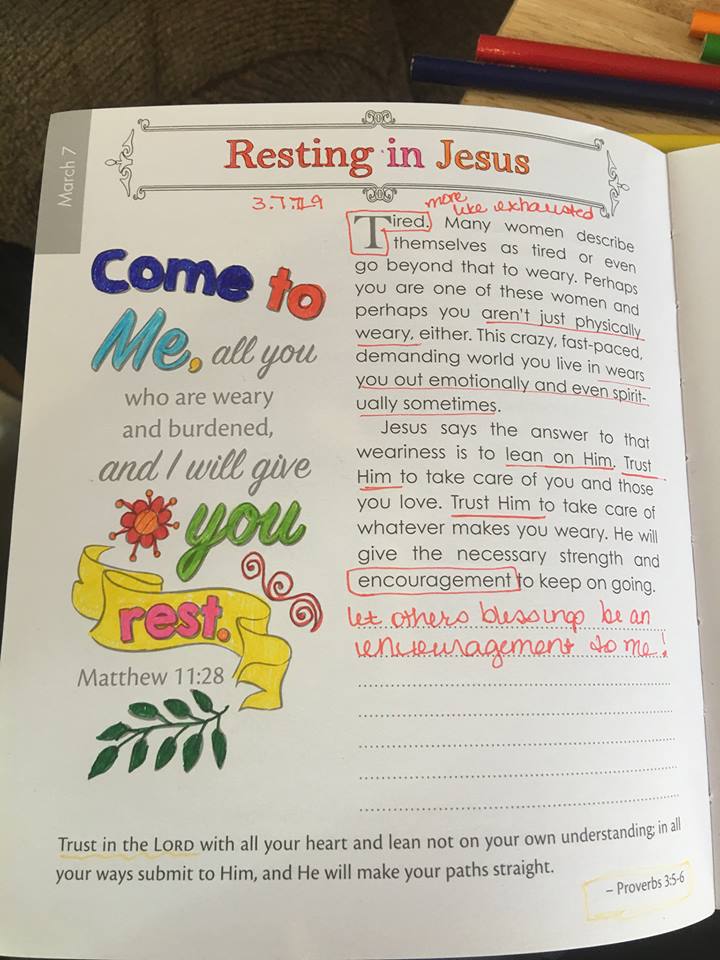 March 7
Resting in Jesus
3.7.19
more
like exhausted
Come to
Me, all you
who are weary
and burdened,
and I will give
you
rest.
Matthew 11:28
Tired. Many women describe
themselves as tired or even
go beyond that to weary. Perhaps
you are one of these women and
perhaps you aren't just physically
weary, either. This crazy, fast-paced,
demanding world you live in wears
you out emotionally and even spirit-
ually sometimes.
Jesus says the answer to that
weariness is to lean on Him. Trust
Him to take care of you and those
you love. Trust Him to take care of
whatever makes you weary. He will
give the necessary strength and
encouragement to keep on going.
let others blessings be an
encouragement to me!
Trust in the LORD with all your heart and lean not on your own understanding; in all
your ways submit to Him, and He will make your paths straight.
– Proverbs 3:5-6